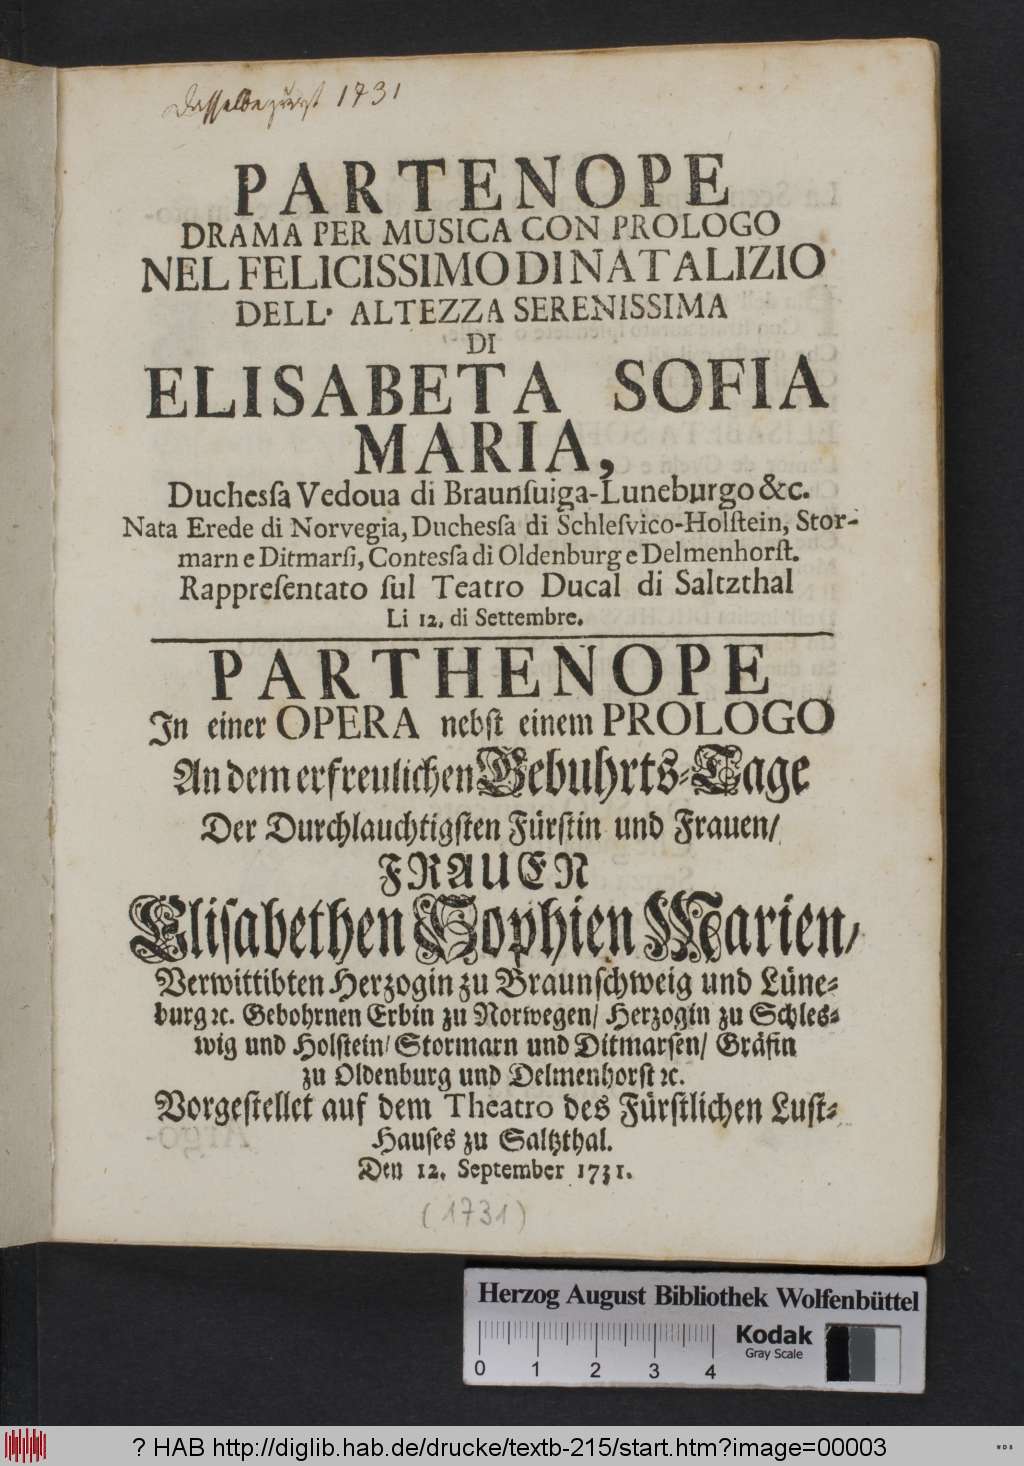 1731
PARTENOPE
DRAMA PER MUSICA CON PROLOGO
NEL FELICISSIMO DI NATALIZIO
DELL' ALTEZZA SERENISSIMA
DI
ELISABETA SOFIA
MARIA,
Ducheſſa Vedoua di Braunſuiga-Luneburgo &c.
Nata Erede di Norvegia, Ducheſſa di Schleſvico-Holſtein, Stor-
marn e Ditmarſi, Conteſſa di Oldenburg e Delmenhorſt.
Rappreſentato ſul Teatro Ducal di Saltzthal
Li 12. di Settembre.
PARTHENOPE
In einer OPERA nebſt einem PROLOGO
An dem erfreulichen Gebuhrts-Tage
Der Durchlauchtigſten Fürſtin und Frauen/
FRAUEN
Eliſabethen Sophien Marien/
Verwittibten Herzogin zu Braunſchweig und Lüne-
burg ꝛc. Gebohrnen Erbin zu Norwegen/ Herzogin zu Schles-
wig und Holſtein/ Stormarn und Ditmarſen/ Gräfin
zu Oldenburg und Delmenhorſt ꝛc.
Vorgeſtellet auf dem Theatro des Fürſtlichen Luſt-
Hauſes zu Saltzthal.
Den 12. September 1731.
(1731)
Herzog August Bibliothek Wolfenbüttel
0 1 2 3 4
Kodak
Gray Scale
? HAB http://diglib.hab.de/drucke/textb-215/start.htm?image=00003